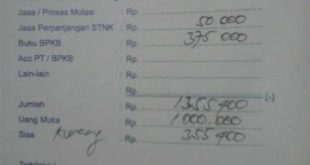 Jasa / Proses Mutasi : Rp.
Jasa Perpanjangan STNK : Rp. 50 000
Buku BPKB : Rp. 375 000
Acc PT / BPKB : Rp.
Lain-lain : Rp.
Rp. (-)
Jumlah : Rp. 1355 400
Uang Muka : Rp. 1.000.000
Sisa kurang : Rp. 355 400